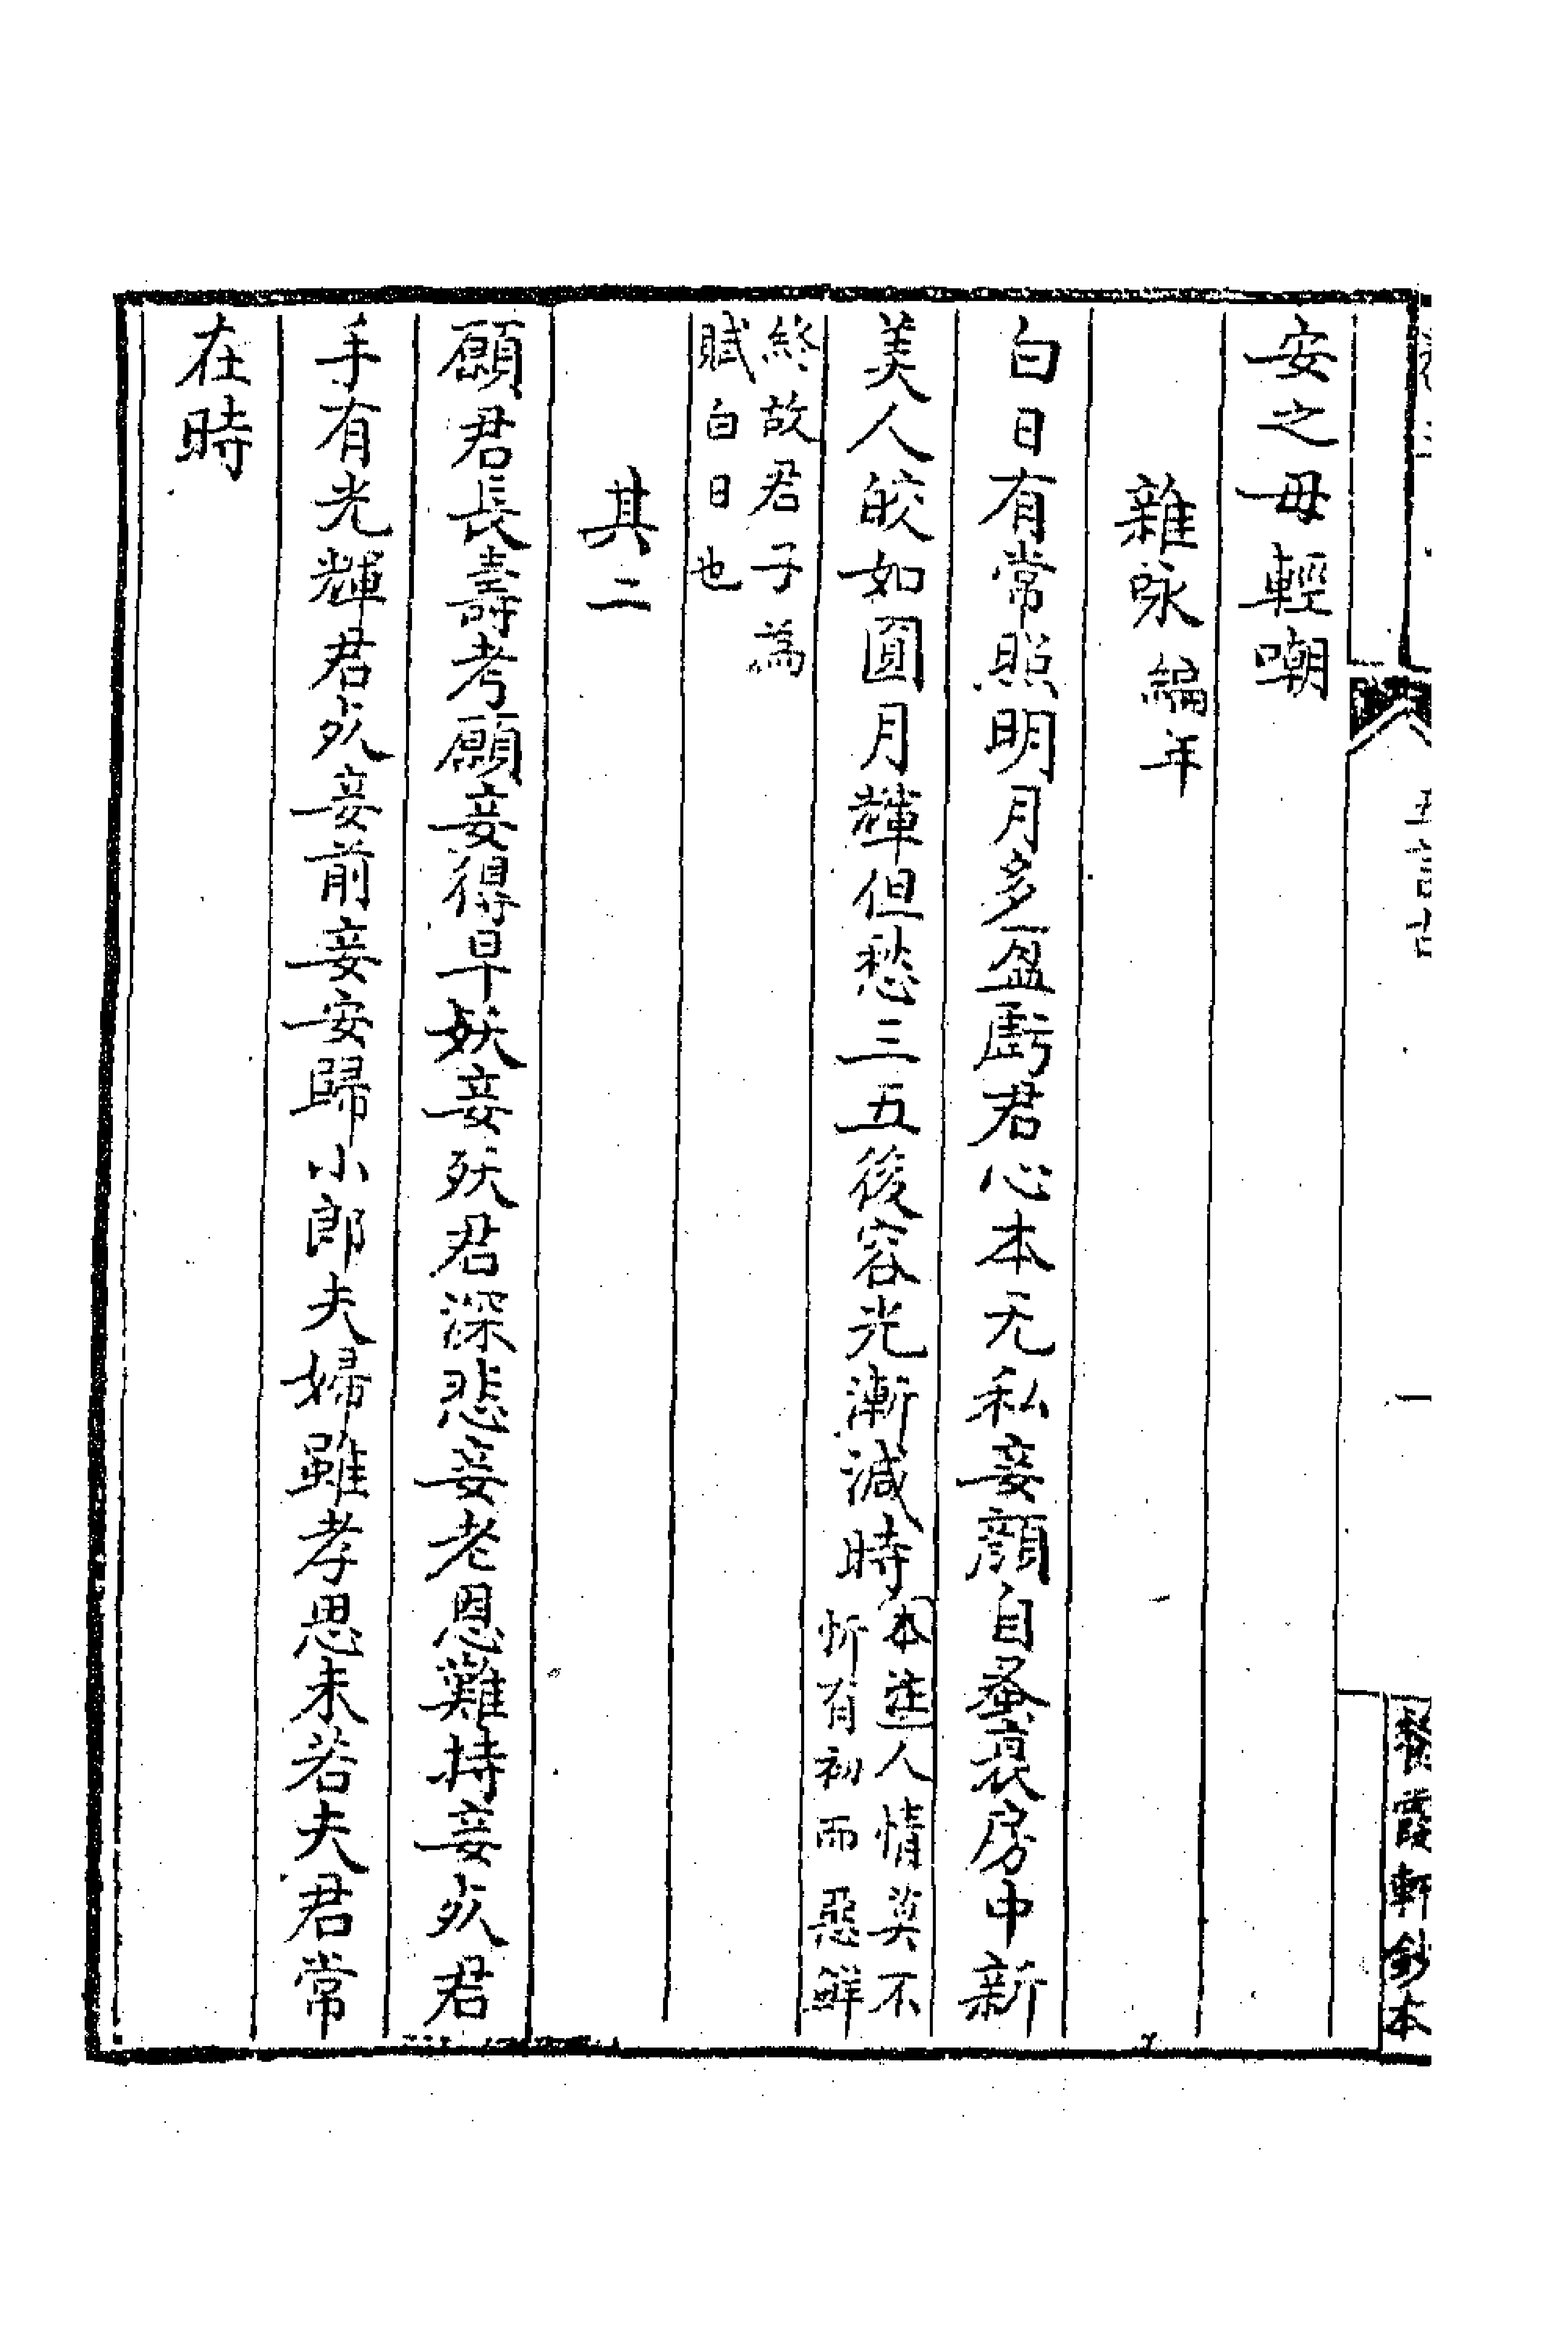 五言古
一
霞軒鈔本
安之毋輕嘲
雜咏編年
白日有常照明月多盈虧君心本无私妾顏自蚤衰房中新
美人皎如圓月輝但愁三五後容光漸減時本注人情莫不
忻有初而惡鮮
終故君子為
賦白日也
其二
願君長壽考願妾得早妖妾殀君深悲妾老恩難持妾死君
手有光輝君死妾前妾安歸小郎夫婦雖孝思未若夫君常
在時